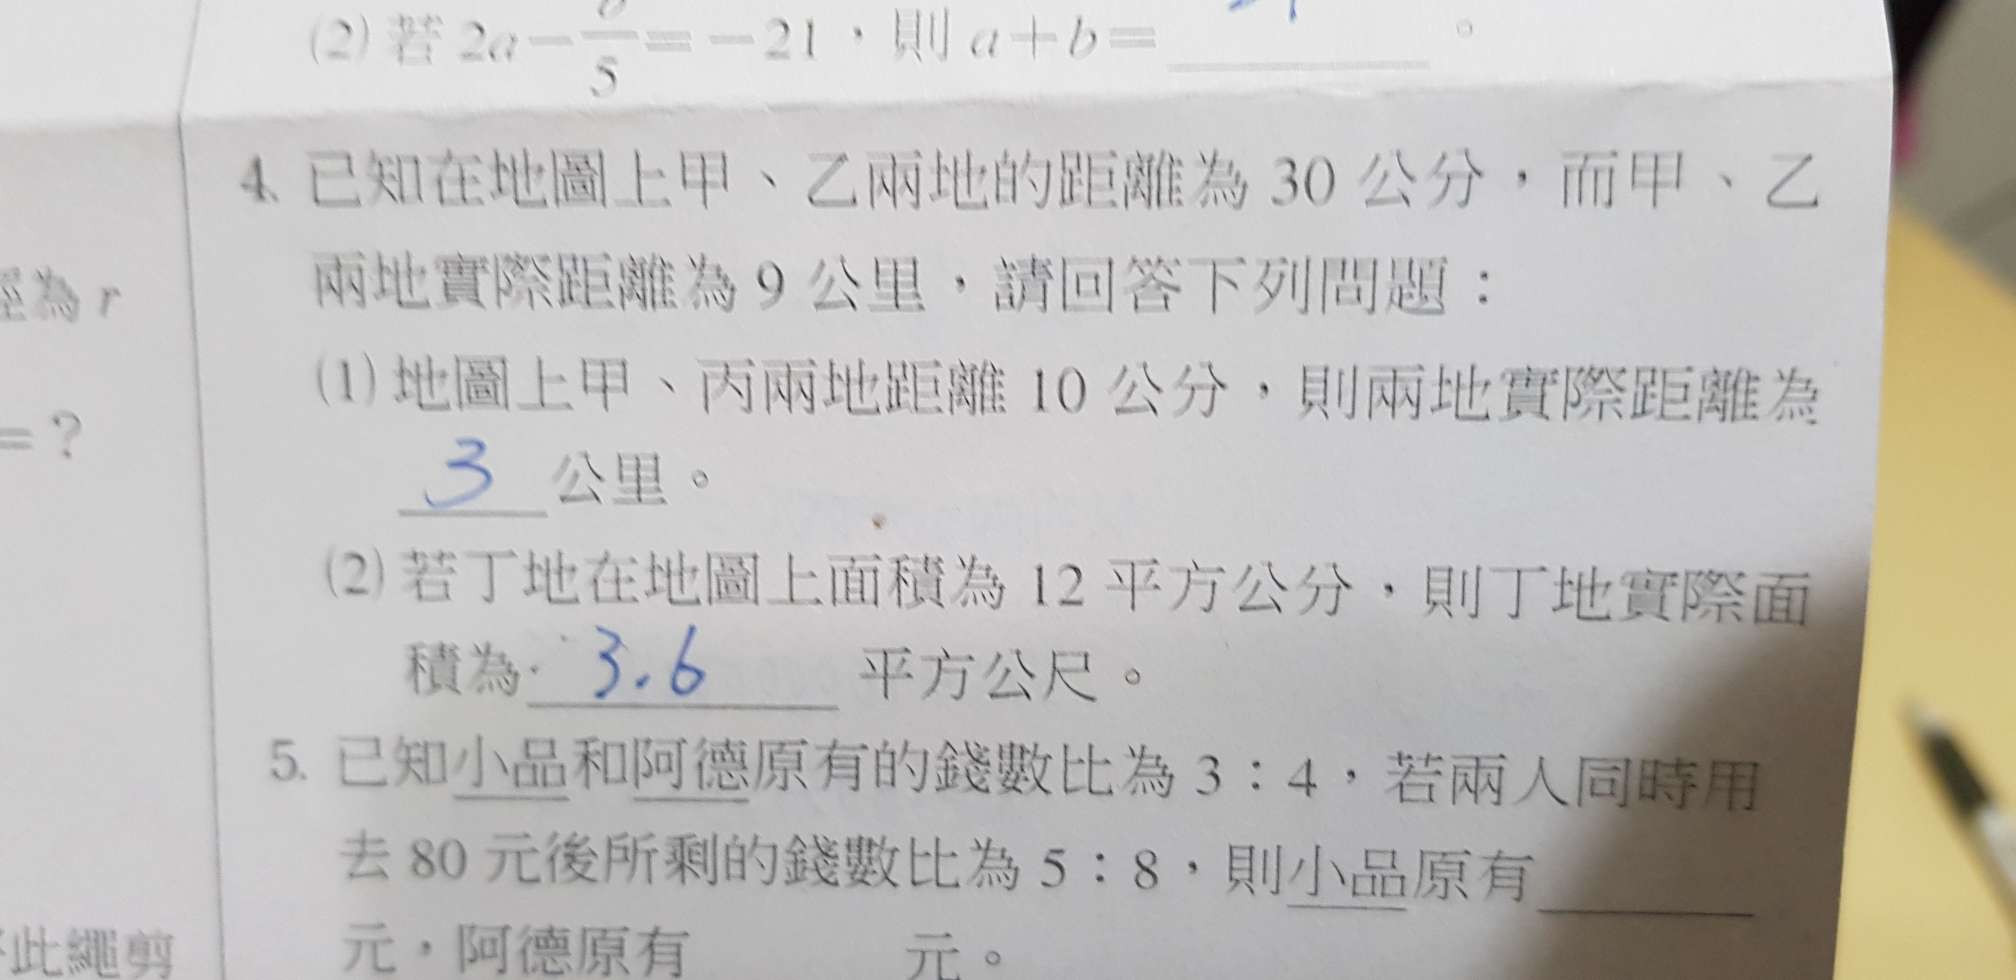 (2) 若 2a－—/5＝－21，則 a＋b＝
4. 已知在地圖上甲、乙兩地的距離為 30 公分，而甲、乙
兩地實際距離為 9 公里，請回答下列問題：
(1) 地圖上甲、丙兩地距離 10 公分，則兩地實際距離為
3 公里。
(2) 若丁地在地圖上面積為 12 平方公分，則丁地實際面
積為 3.6 平方公尺。
5. 已知小品和阿德原有的錢數比為 3：4，若兩人同時用
去 80 元後所剩的錢數比為 5：8，則小品原有
元，阿德原有 元。
為 r
＝？
此繩剪